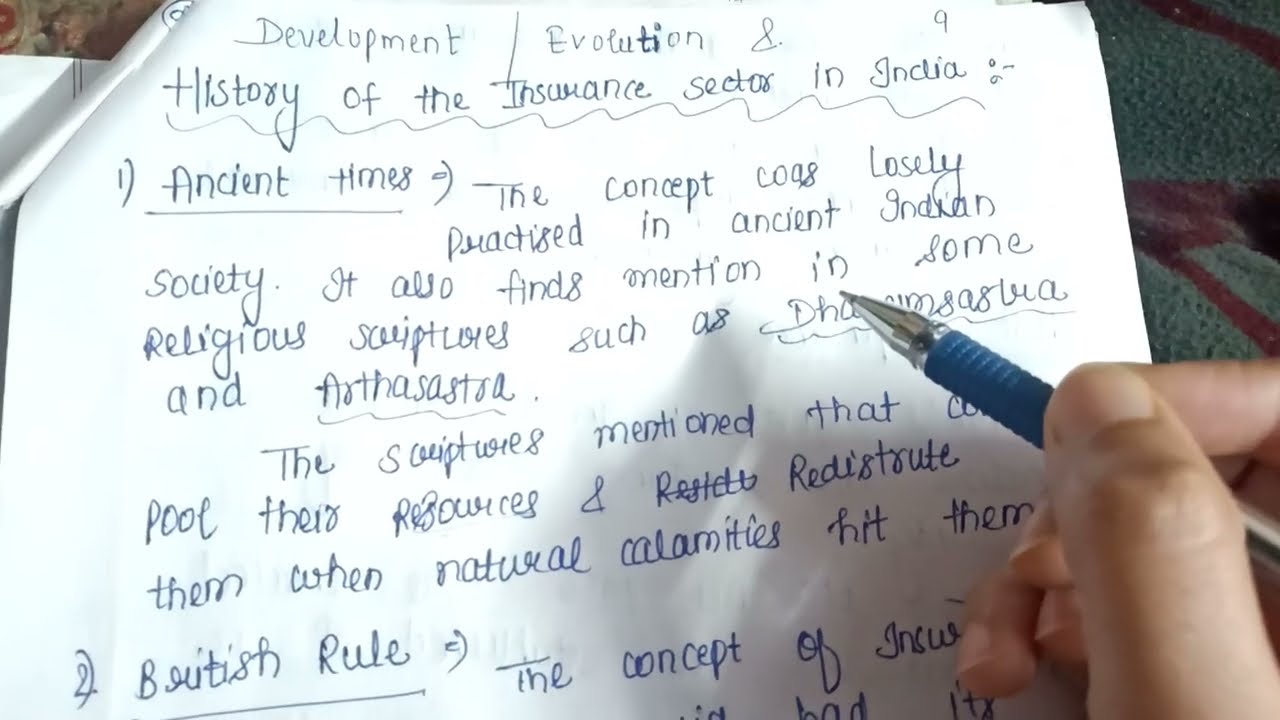 9
Development / Evolution &
History of the Insurance sector in India :-
1) Ancient times => The concept was Losely
practised in ancient Indian
society. It also finds mention in some
Religious scriptures such as
and Arthasastra.
The scriptures mentioned that
pool their Resources & Redistrute
them when natural calamities hit them
2) British Rule => The concept of
had its